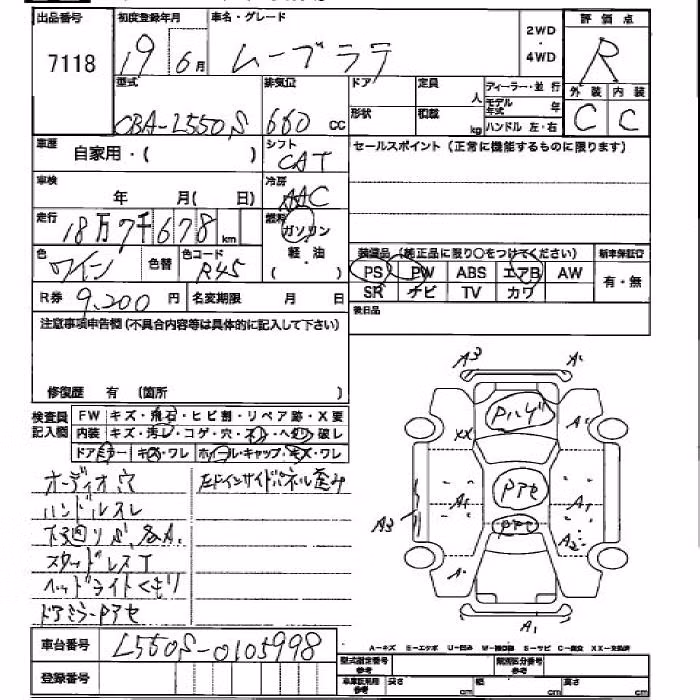 出品番号
7118
初度登録年月
19 6月
車名・グレード
ムーブラテ
2WD
・
4WD
評価点
R
外装 内装
C C
型式
CBA-L550S
排気量
660 cc
ドア
形状
定員
人
積載
kg
ディーラー・並行
モデル年式 年
ハンドル 左・右
車歴
自家用・( )
シフト
CAT
セールスポイント(正常に機能するものに限ります)
車検
年 月( 日)
冷房
AAC
走行
18万7千678km
燃料
ガソリン
軽・油
( )
色
ワイン
色替
色コード
R45
装備品(純正品に限り○をつけてください)
新車保証書
PS PW ABS エアB AW
有・無
SR ナビ TV カワ
R券 9,200円
名変期限 月 日
後日品
注意事項申告欄(不具合内容等は具体的に記入して下さい)
修復歴 有 (箇所 )
検査員
記入欄
FW キズ・飛石・ヒビ割・リペア跡・X要
内装 キズ・汚レ・コゲ・穴・スレ・ヘタリ・破レ
ドアミラー キズ・ワレ ホイール・キャップ・キズ・ワレ
オーディオ穴
ハンドルスレ
スタッドレスT
ヘッドライトくもり
ドアミラーPアセ
左Fインサイドパネル歪み
A3 A
Pハゲ
A
XX
A1
Pアセ
A1
A3
Pアセ
A2
A
A1
車台番号
L550S-0105998
登録番号
A-キズ E-エクボ U-凹み W-補修跡 S-サビ C-腐食 XX-交換済
型式指定番号
参考
類別区分番号
参考
車庫証明用
参考
長さ cm 幅 cm 高さ cm